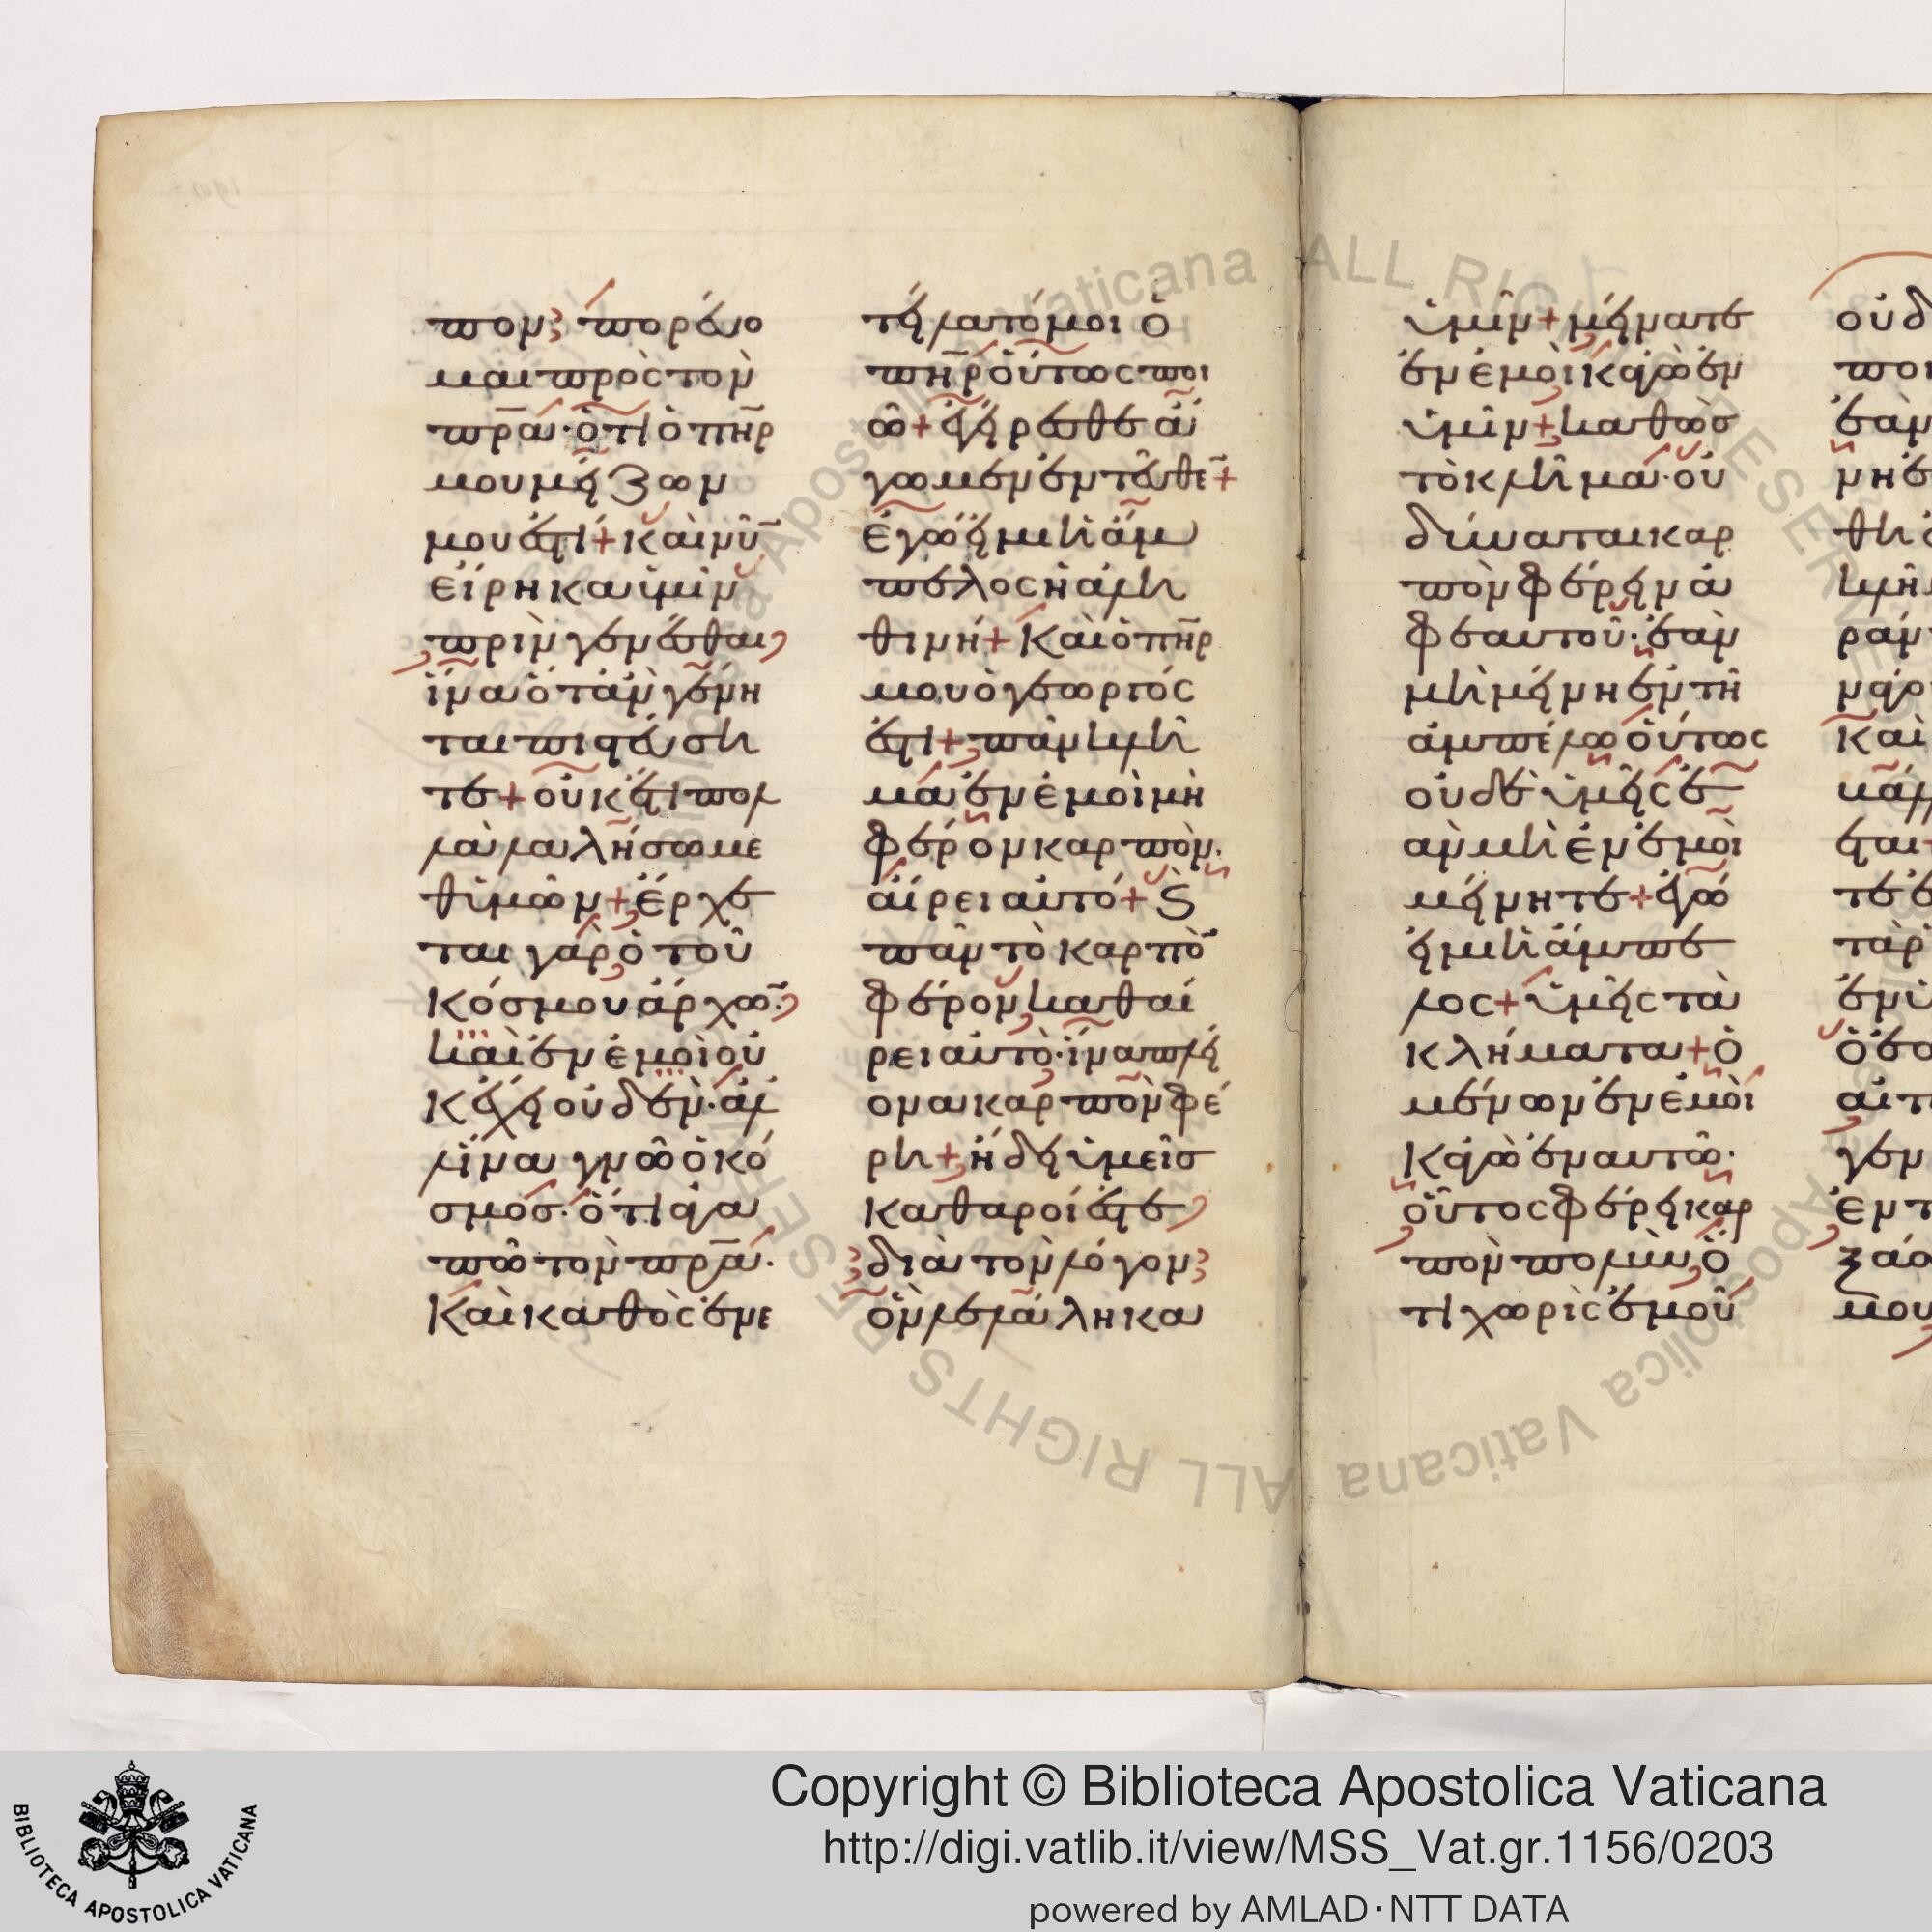 πον πορεύο
μαι πρὸς τὸν
πρ̅α· ὅτι ὁ πη̅ρ
μου μείζων
μου ἐστί + καὶ νῦ
εἴρηκα ὑμὶν
πρὶν γενέσθαι
ἵνα ὅταν γένη
ται πιστεύση
τε + οὐκ ἔτι πολ
λὰ λαλήσω με
θ ὑμῶν + ἔρχε
ται γὰρ ὁ τοῦ
κόσμου ἄρχω̅·
καὶ ἐν ἐμοὶ οὐ
κ ἔχει οὐδέν· ἀλ
λ ἵνα γνῶ ὁ κό
σμος· ὅτι ἀγα
πῶ τὸν πρ̅α·
Καὶ καθὸς ἐνε
τείλατό μοι ὁ
πη̅ρ οὕτως ποι
ῶ + ἐγείρεσθε ἄ
γωμεν ἐντεῦθε̅ +
Ἐγώ εἰμι ἡ ἄμ
πελος ἡ ἀλη
θινή + Καὶ ὁ πη̅ρ
μου ὁ γεωργός
ἐστι + πᾶν κλῆ
μα ἐν ἐμοὶ μὴ
φέρον καρπὸν·
αἴρει αὐτό + Ϛ
πᾶν τὸ καρπὸ
φέρον καθαί
ρει αὐτὸ· ἵνα πλεί
ονα καρπὸν φέ
ρη + ἤδη ὑμεῖς
καθαροί ἐστε
διὰ τὸν λόγον
ὃν λελάληκα
ὑμῖν + μείνατε
ἐν ἐμοὶ κἀγὼ ἐν
ὑμῖν + καθὼς
τὸ κλῆμα· οὐ
δύναται καρ
πὸν φέρειν ἀ
φ ἑαυτοῦ· ἐὰν
μὴ μείνη ἐν τῆ
ἀμπέλω οὕτως
οὐδὲ ὑμεῖς ἐ
ὰν μὴ ἐν ἐμοὶ
μείνητε + ἐγώ
εἰμι ἡ ἄμπε
λος + ὑμεῖς τὰ
κλήματα + ὁ
μένων ἐν ἐμοὶ
κἀγὼ ἐν αυτῶ·
οὗτος φέρει καρ
πὸν πολὺν ὅ
τι χωρὶς ἐμοῦ
Copyright © Biblioteca Apostolica Vaticana
http://digi.vatlib.it/view/MSS_Vat.gr.1156/0203
powered by AMLAD·NTT DATA
BIBLIOTECA APOSTOLICA VATICANA